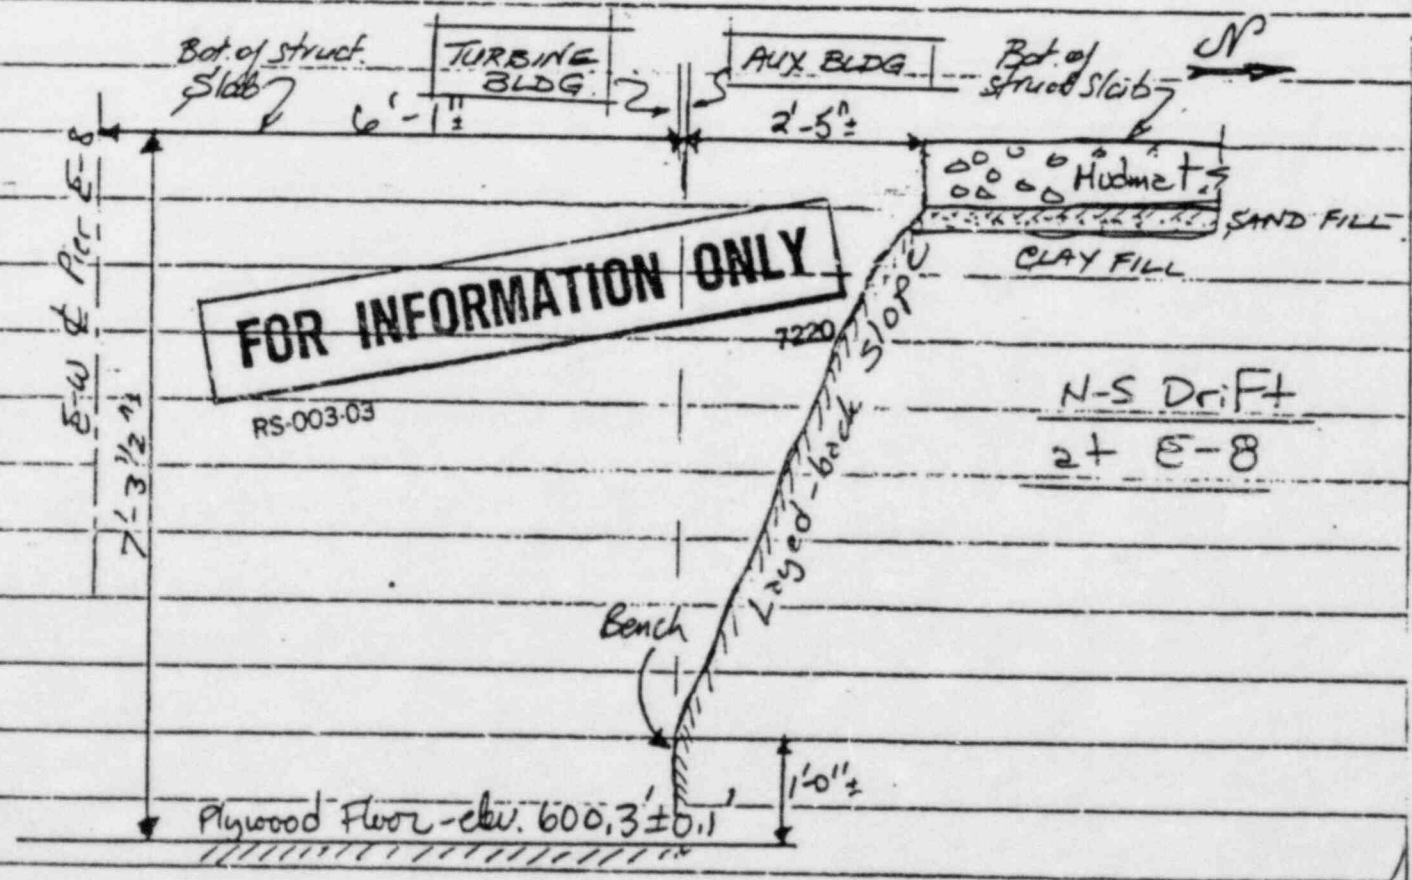 Bot. of struct.
Slab
TURBINE
BLDG
AUX BLDG
Bot. of
struct slab
N
6'-1"±
2'-5"±
E-W ℄ Pier E-8
7'-3 1/2"±
Hudmat
SAND FILL
CLAY FILL
FOR INFORMATION ONLY
7220
RS-003-03
Layed-back Slope
N-S Drift
at E-8
Bench
1'-0"±
Plywood Floor-elev. 600.3'±0.1'